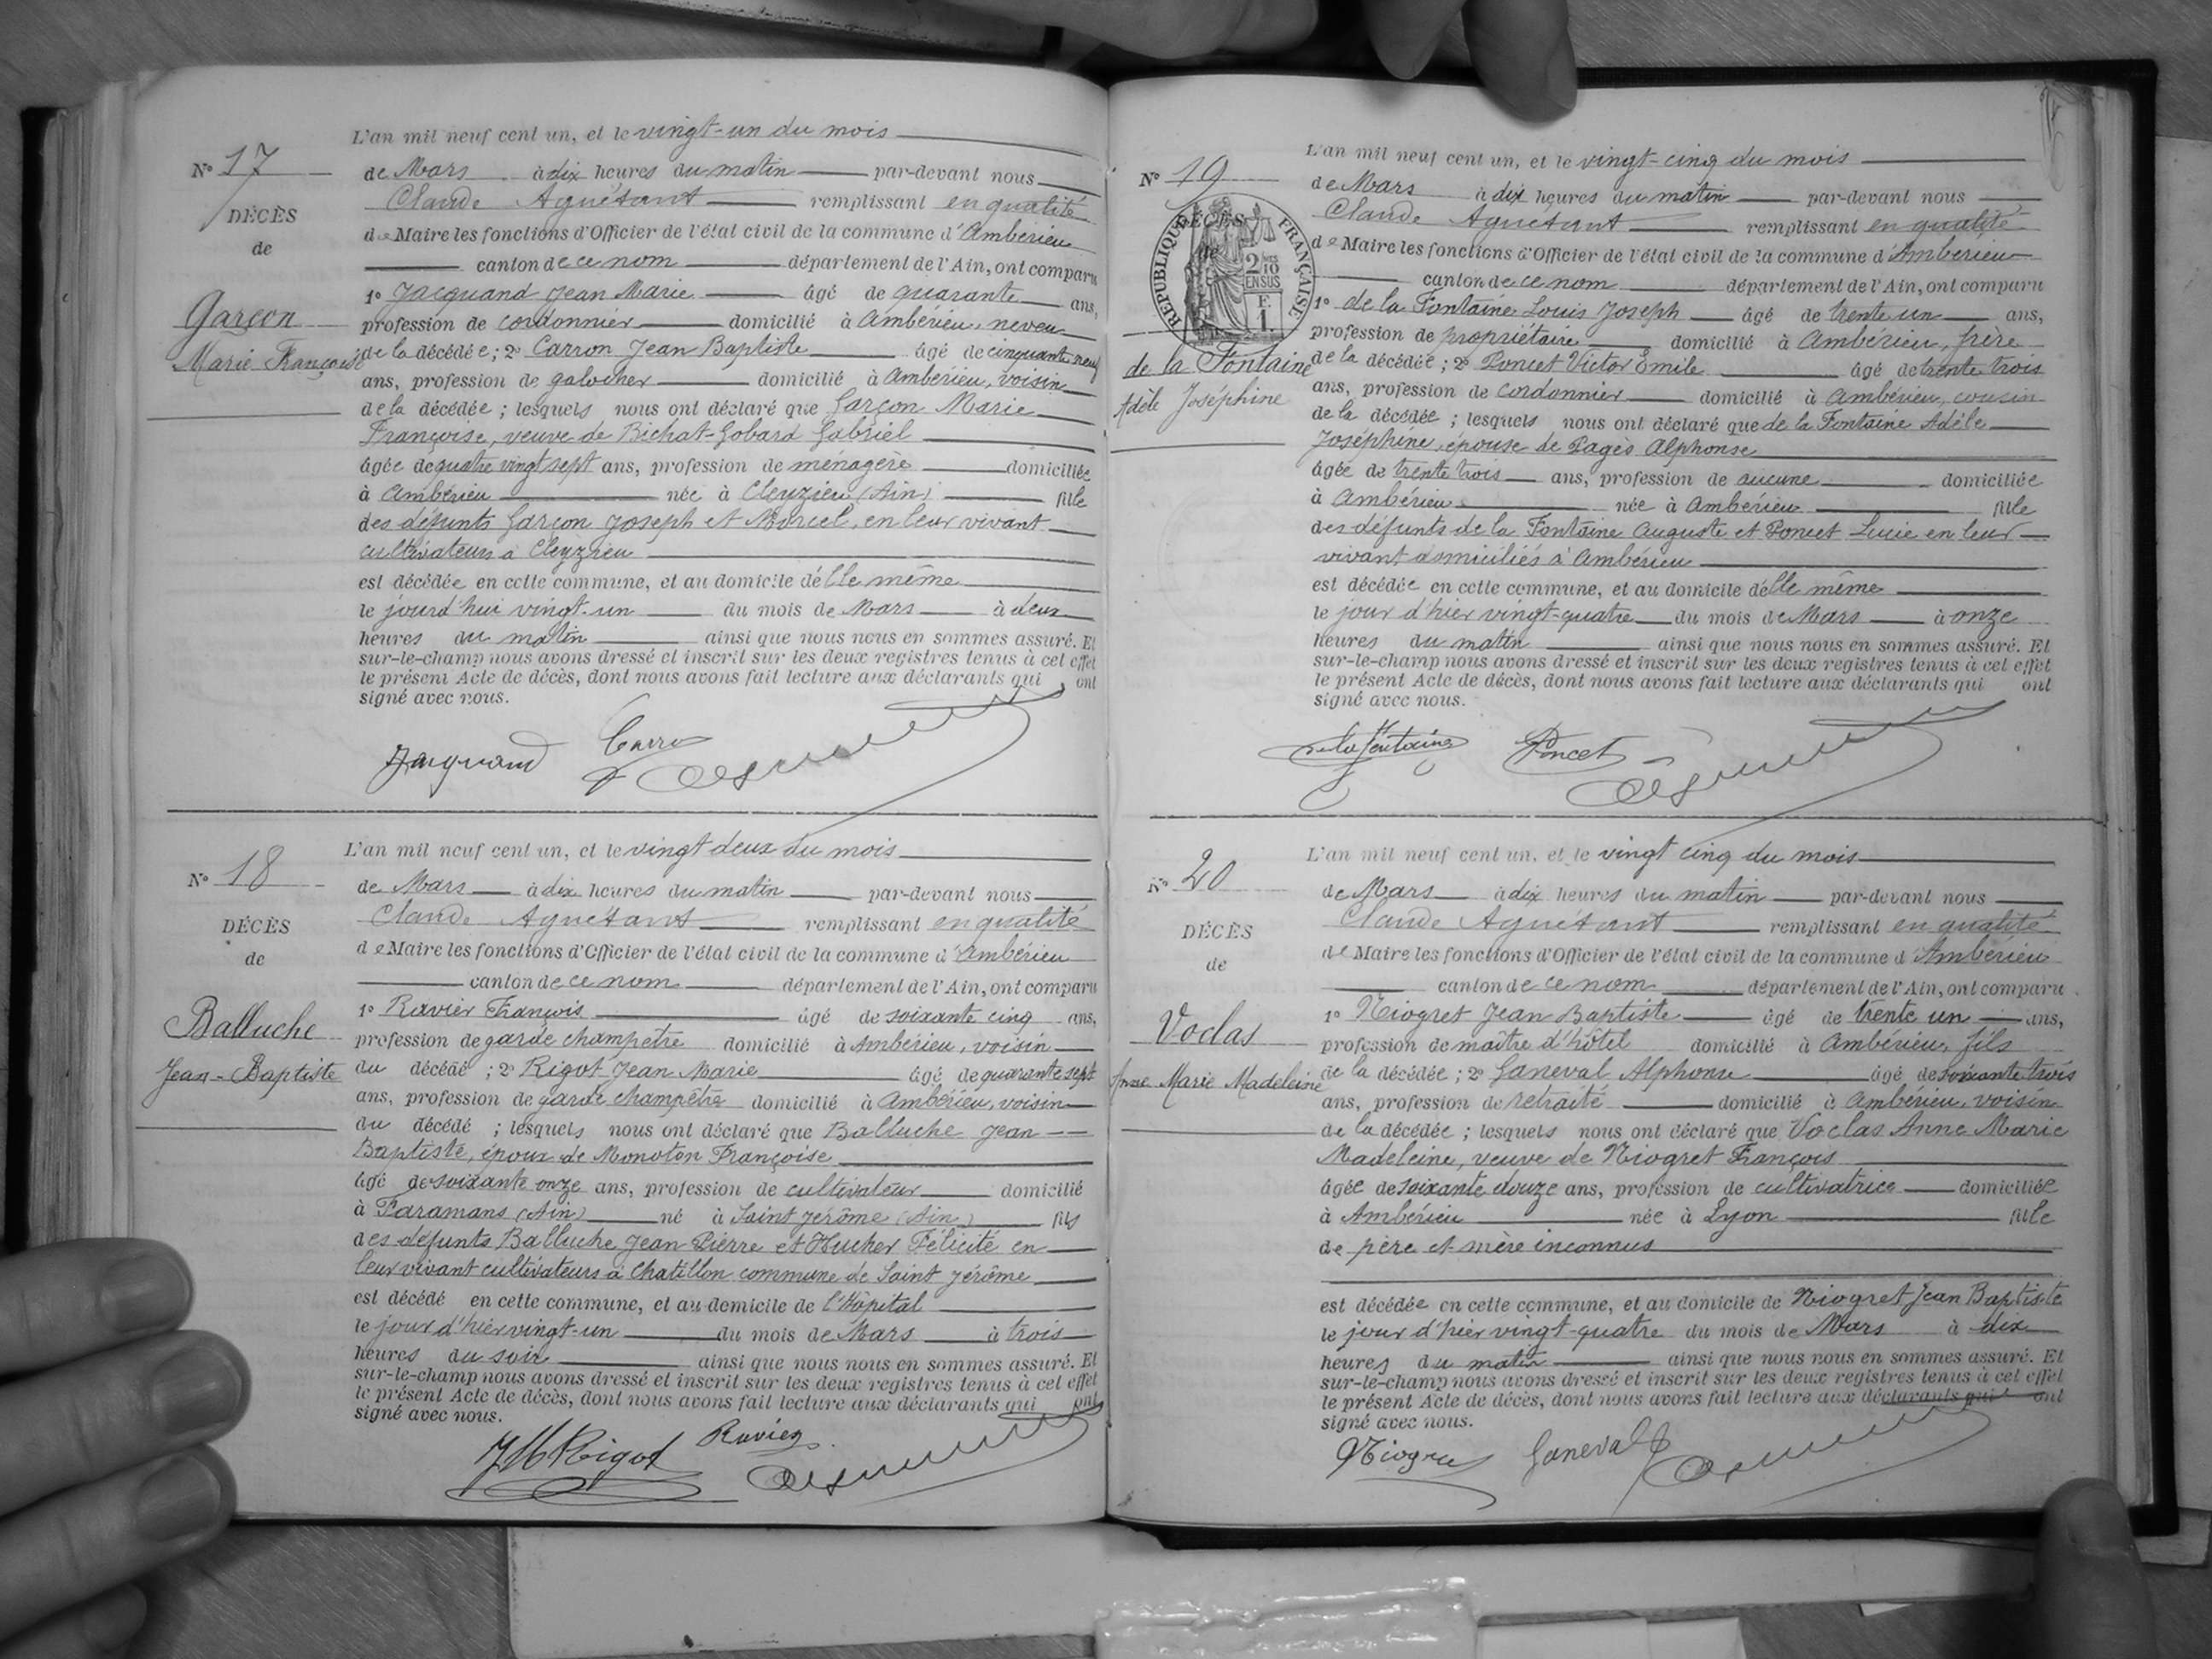 L'an mil neuf cent un, et le vingt-un du mois
N° 17
de Mars à dix heures du matin par-devant nous
Claude Aguétant remplissant en qualité
DÉCÈS
de Maire les fonctions d'Officier de l'état civil de la commune d'Ambérieu
de
canton de ce nom département de l'Ain, ont comparu
1° Jacquand Jean Marie âgé de quarante ans,
Garçon
profession de cordonnier domicilié à Ambérieu, neveu
Marie Françoise
de la décédée; 2° Carron Jean Baptiste âgé de cinquante neuf
ans, profession de galocher domicilié à Ambérieu, voisin
de la décédée; lesquels nous ont déclaré que Garçon Marie
Françoise, veuve de Bichat-Gobard Gabriel
âgée de quatre vingt sept ans, profession de ménagère domiciliée
à Ambérieu née à Cleyzieu (Ain) fille
des défunts Garçon Joseph et Morcel, en leur vivant
cultivateurs à Cleyzieu
est décédée en cette commune, et au domicile d'elle même
le jourd'hui vingt-un du mois de Mars à deux
heures du matin ainsi que nous nous en sommes assuré. Et
sur-le-champ nous avons dressé et inscrit sur les deux registres tenus à cet effet
le présent Acte de décès, dont nous avons fait lecture aux déclarants qui ont
signé avec nous.
Jacquand Carron
L'an mil neuf cent un, et le vingt deux du mois
N° 18
de Mars à dix heures du matin par-devant nous
Claude Aguétant remplissant en qualité
DÉCÈS
de Maire les fonctions d'Officier de l'état civil de la commune d'Ambérieu
de
canton de ce nom département de l'Ain, ont comparu
1° Ravier François âgé de soixante cinq ans,
Balluche
profession de garde champêtre domicilié à Ambérieu, voisin
Jean-Baptiste
du décédé; 2° Rigot Jean Marie âgé de quarante sept
ans, profession de garde champêtre domicilié à Ambérieu, voisin
du décédé; lesquels nous ont déclaré que Balluche Jean
Baptiste, époux de Monoton Françoise
âgé de soixante onze ans, profession de cultivateur domicilié
à Faramans (Ain) né à Saint Jérôme (Ain) fils
des défunts Balluche Jean Pierre et Hucher Félicité en
leur vivant cultivateurs à Chatillon commune de Saint Jérôme
est décédé en cette commune, et au domicile de l'Hôpital
le jour d'hier vingt-un du mois de Mars à trois
heures du soir ainsi que nous nous en sommes assuré. Et
sur-le-champ nous avons dressé et inscrit sur les deux registres tenus à cet effet
le présent Acte de décès, dont nous avons fait lecture aux déclarants qui ont
signé avec nous.
JM Rigot Ravier
L'an mil neuf cent un, et le vingt-cinq du mois
N° 19
de Mars à dix heures du matin par-devant nous
Claude Aguétant remplissant en qualité
DÉCÈS
de
RÉPUBLIQUE FRANÇAISE
2/10 EN SUS
F. 1.
de Maire les fonctions d'Officier de l'état civil de la commune d'Ambérieu
canton de ce nom département de l'Ain, ont comparu
1° de la Fontaine Louis Joseph âgé de trente un ans,
profession de propriétaire domicilié à Ambérieu, frère
de la Fontaine
de la décédée; 2° Poncet Victor Emile âgé de trente trois
Adèle Joséphine
ans, profession de cordonnier domicilié à Ambérieu, cousin
de la décédée; lesquels nous ont déclaré que de la Fontaine Adèle
Joséphine, épouse de Pagès Alphonse
âgée de trente trois ans, profession de aucune domiciliée
à Ambérieu née à Ambérieu fille
des défunts de la Fontaine Auguste et Poncet Lucie en leur
vivant domiciliés à Ambérieu
est décédée en cette commune, et au domicile d'elle même
le jour d'hier vingt-quatre du mois de Mars à onze
heures du matin ainsi que nous nous en sommes assuré. Et
sur-le-champ nous avons dressé et inscrit sur les deux registres tenus à cet effet
le présent Acte de décès, dont nous avons fait lecture aux déclarants qui ont
signé avec nous.
de la Fontaine Poncet
L'an mil neuf cent un, et le vingt cinq du mois
N° 20
de Mars à dix heures du matin par-devant nous
Claude Aguétant remplissant en qualité
DÉCÈS
de Maire les fonctions d'Officier de l'état civil de la commune d'Ambérieu
de
canton de ce nom département de l'Ain, ont comparu
1° Niogret Jean Baptiste âgé de trente un ans,
Voclas
profession de maître d'hôtel domicilié à Ambérieu, fils
Anne Marie Madeleine
de la décédée; 2° Ganeval Alphonse âgé de soixante trois
ans, profession de retraité domicilié à Ambérieu, voisin
de la décédée; lesquels nous ont déclaré que Voclas Anne Marie
Madeleine, veuve de Niogret François
âgée de soixante douze ans, profession de cultivatrice domiciliée
à Ambérieu née à Lyon fille
de père et mère inconnus
est décédée en cette commune, et au domicile de Niogret Jean Baptiste
le jour d'hier vingt-quatre du mois de Mars à dix
heures du matin ainsi que nous nous en sommes assuré. Et
sur-le-champ nous avons dressé et inscrit sur les deux registres tenus à cet effet
le présent Acte de décès, dont nous avons fait lecture aux déclarants qui ont
signé avec nous.
Niogret Ganeval